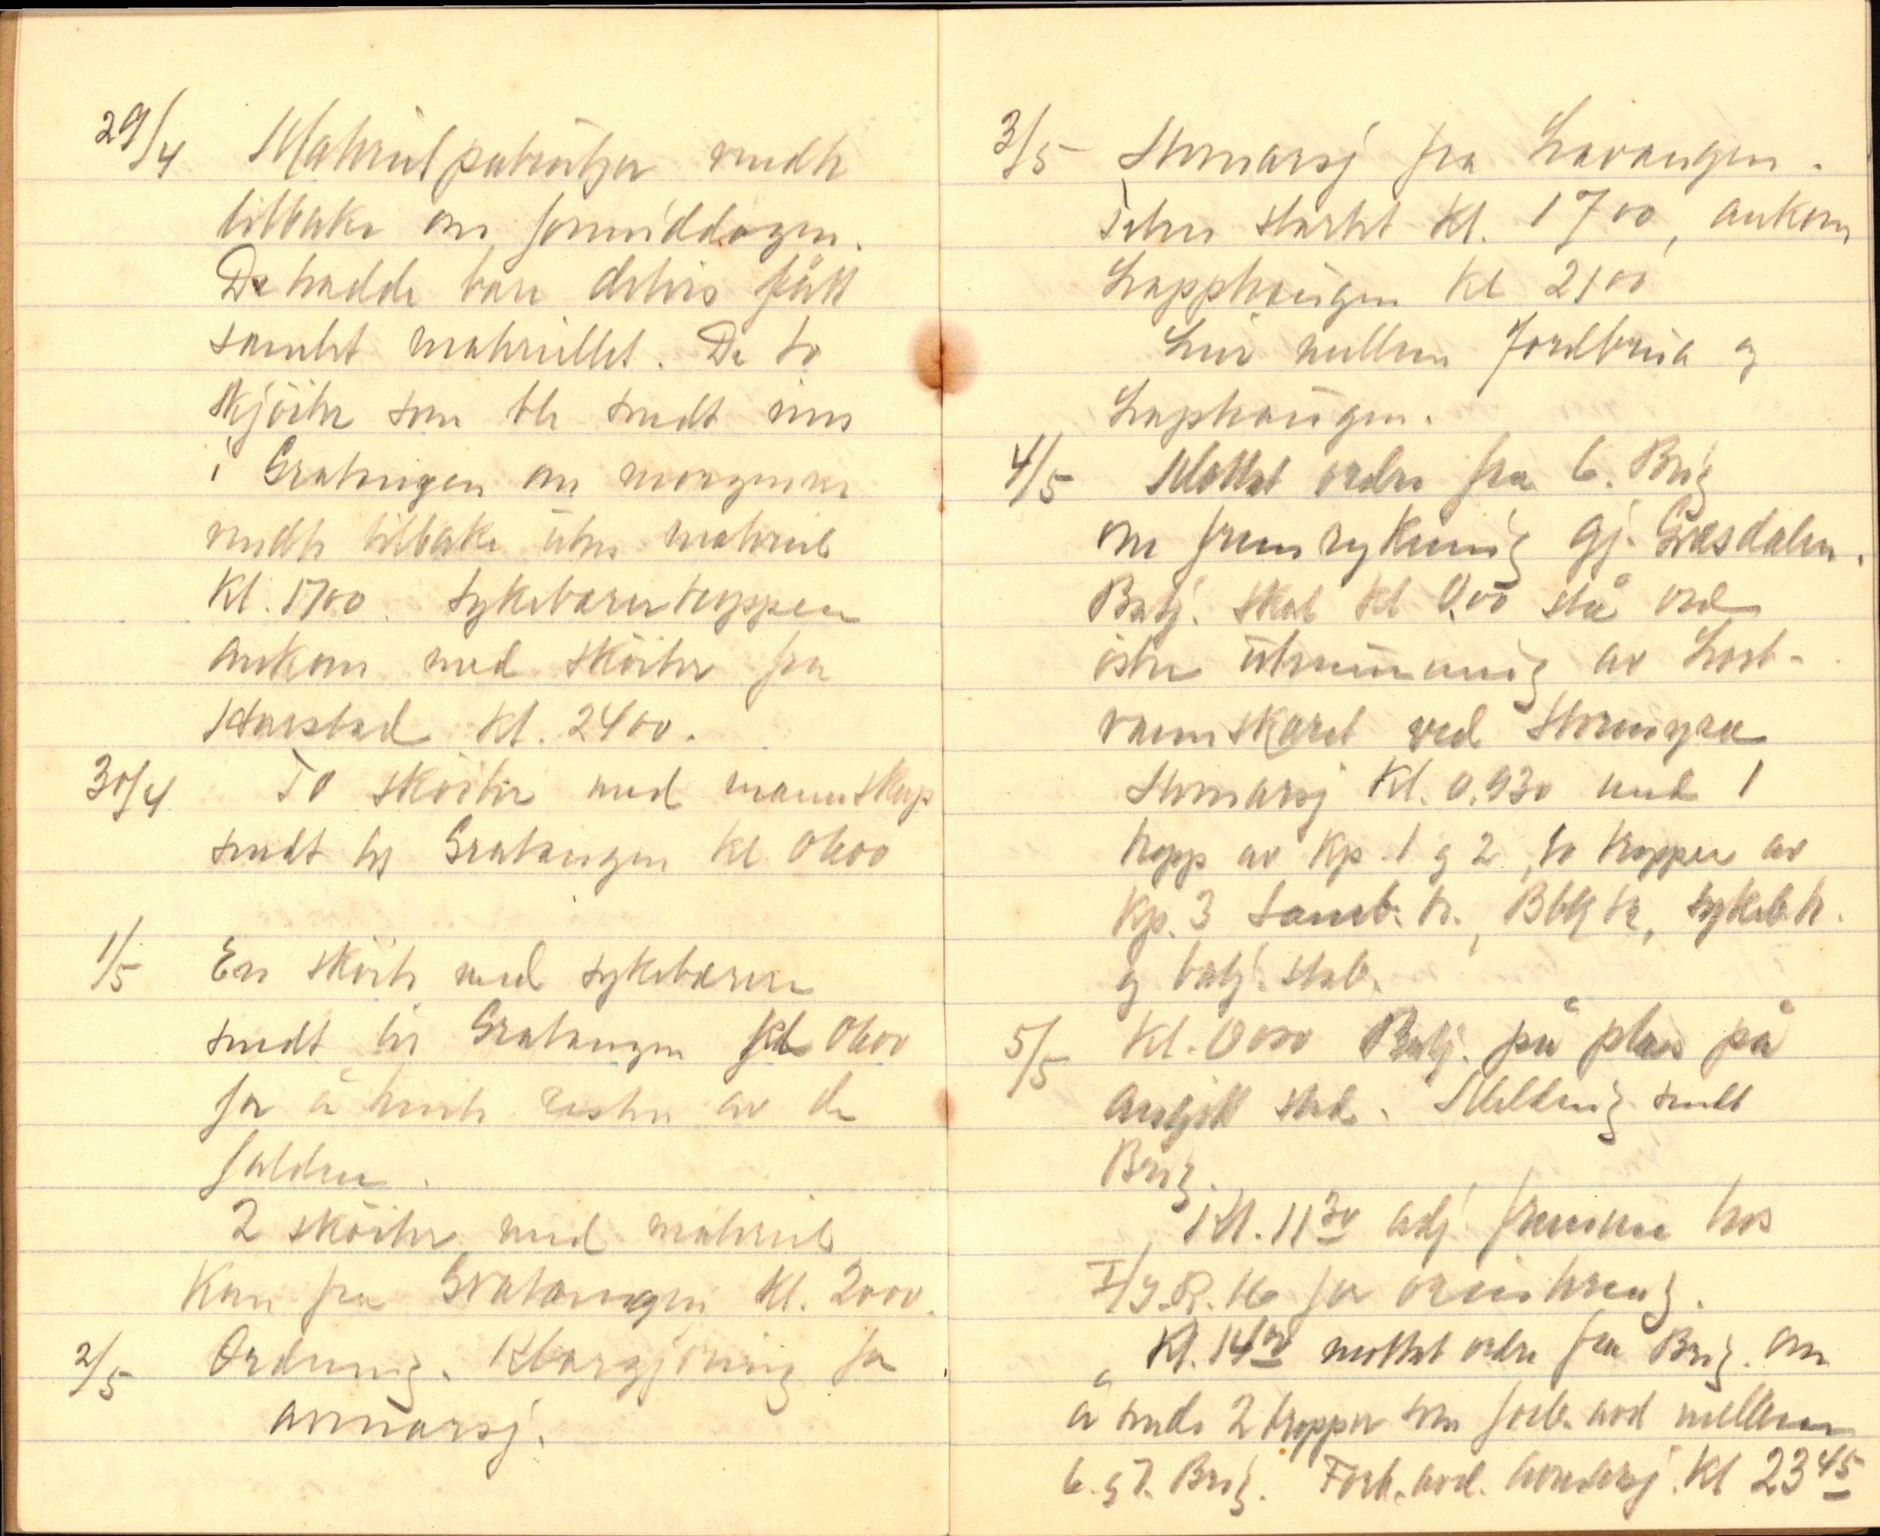 29/4 Materielpatruljer vendte
tilbake om formiddagen.
De hadde bare delvis fått
samlet materiellet. De to
skjöiter som ble sendt inn
i Gratangen om morgenen
vendte tilbake uten materiel
Kl. 1700. Sykebærertroppen
ankom med sköiter fra
Harstad kl. 2400.
30/4 To sköiter med mannskap
sendt til Gratangen kl 0600
1/5 En sköite med sykebærere
sendt til Gratangen kl 0600
for å hente resten av de
faldne.
2 sköiter med materiel
kom fra Gratangen kl. 2000.
2/5 Ordning. Klargjöring for
avmarsj.
3/5 Avmarsj fra Lavangen.
Teten startet kl. 1700, ankom
Lapphaugen kl 2100
Leir mellem Jordbrua og
Laphaugen.
4/5 Mottat ordre fra 6. Brig
om fremrykning gj. Græsdalen.
Batj. skal kl 0.00 stå ved
östre utmunning av Lort-
vannskaret ved Stormyra
Avmarsj Kl. 0.930 med 1
tropp av Kp. 1 g 2, to tropper av
Kp. 3 Samb. tr., Blk tr, sykeb. tr.
g batj. stab.
5/5 Kl. 0000 Batj. på plass på
angitt sted. Melding sendt
Brig.
Kl. 11 30 adj. fremme hos
I/I.R. 16 for orientering.
Kl. 14 00 mottat ordre fra Brig. om
å sende 2 tropper som forb. avd mellem
6. g 7. Brig. Forb. avd. avmarsj. Kl 23 45